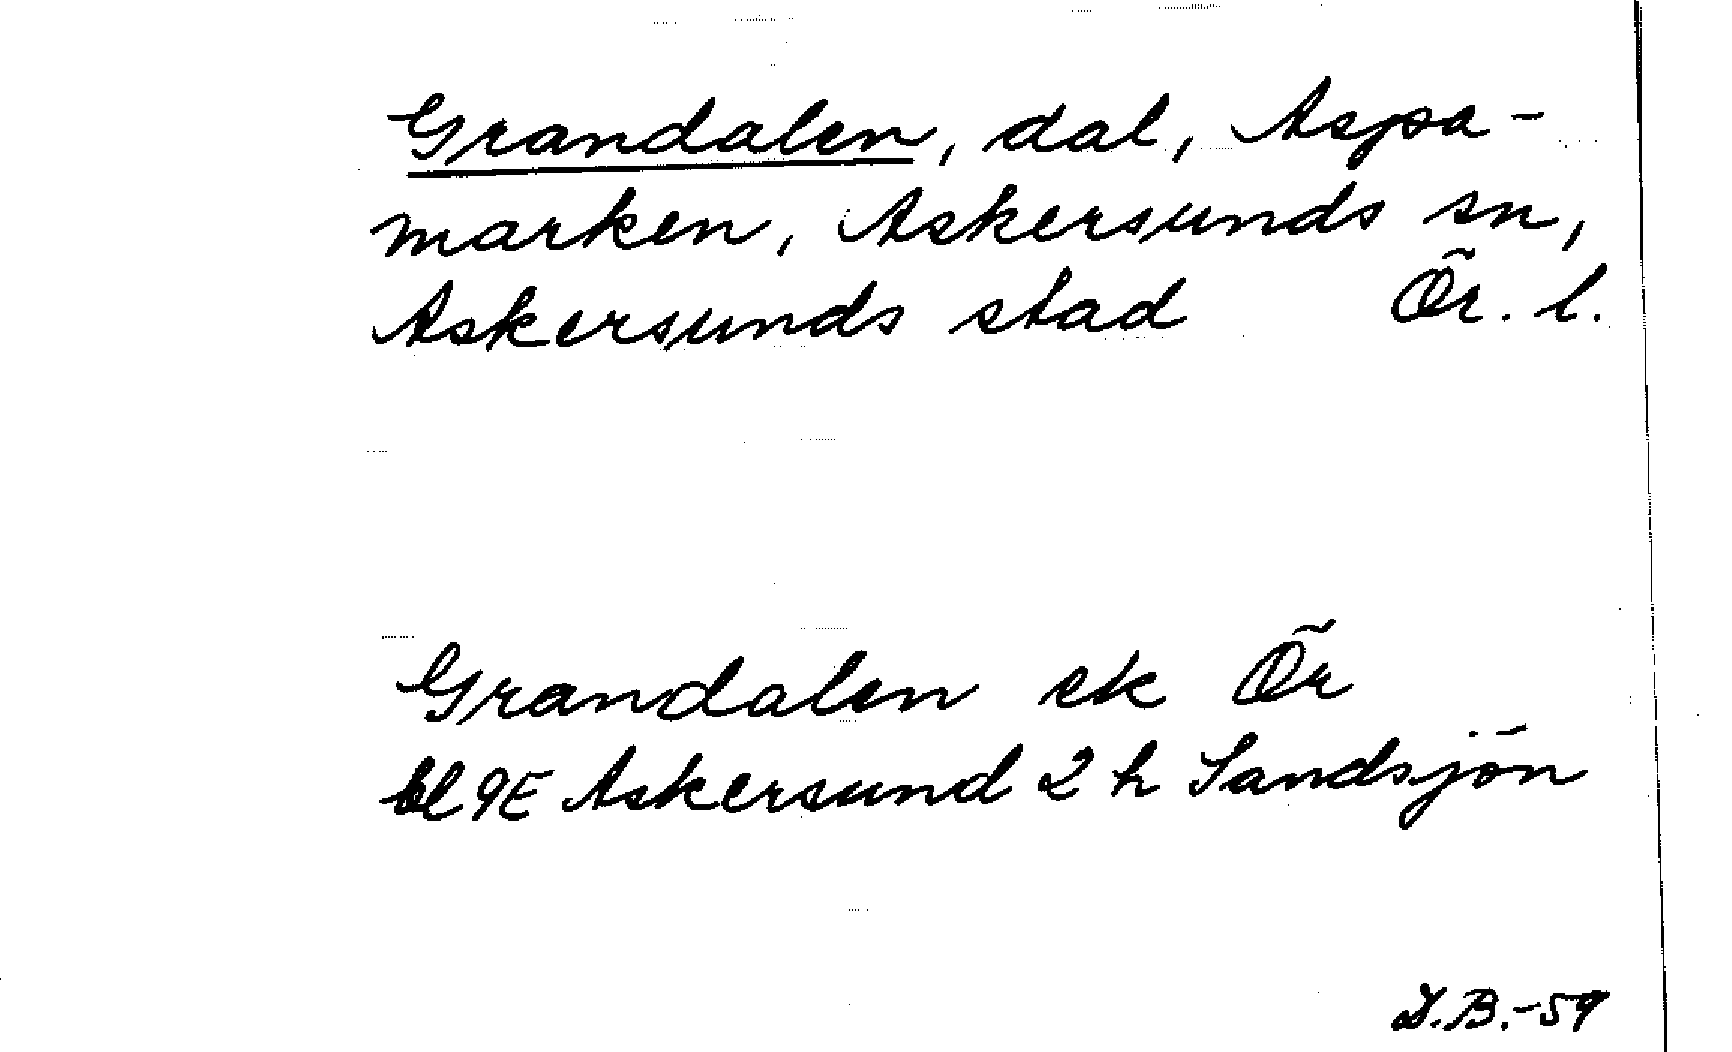 Grandalen, dal, Aspa-
marken, Askersunds sn,
Askersunds stad Ör. l.
Grandalen ek Ör
bl 9E Askersund 2 h Sandsjön
D.B.-59